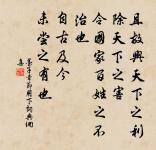 且故興天下之利
除天下之害
令國家百姓之不
治也
自古及今
未嘗之有也